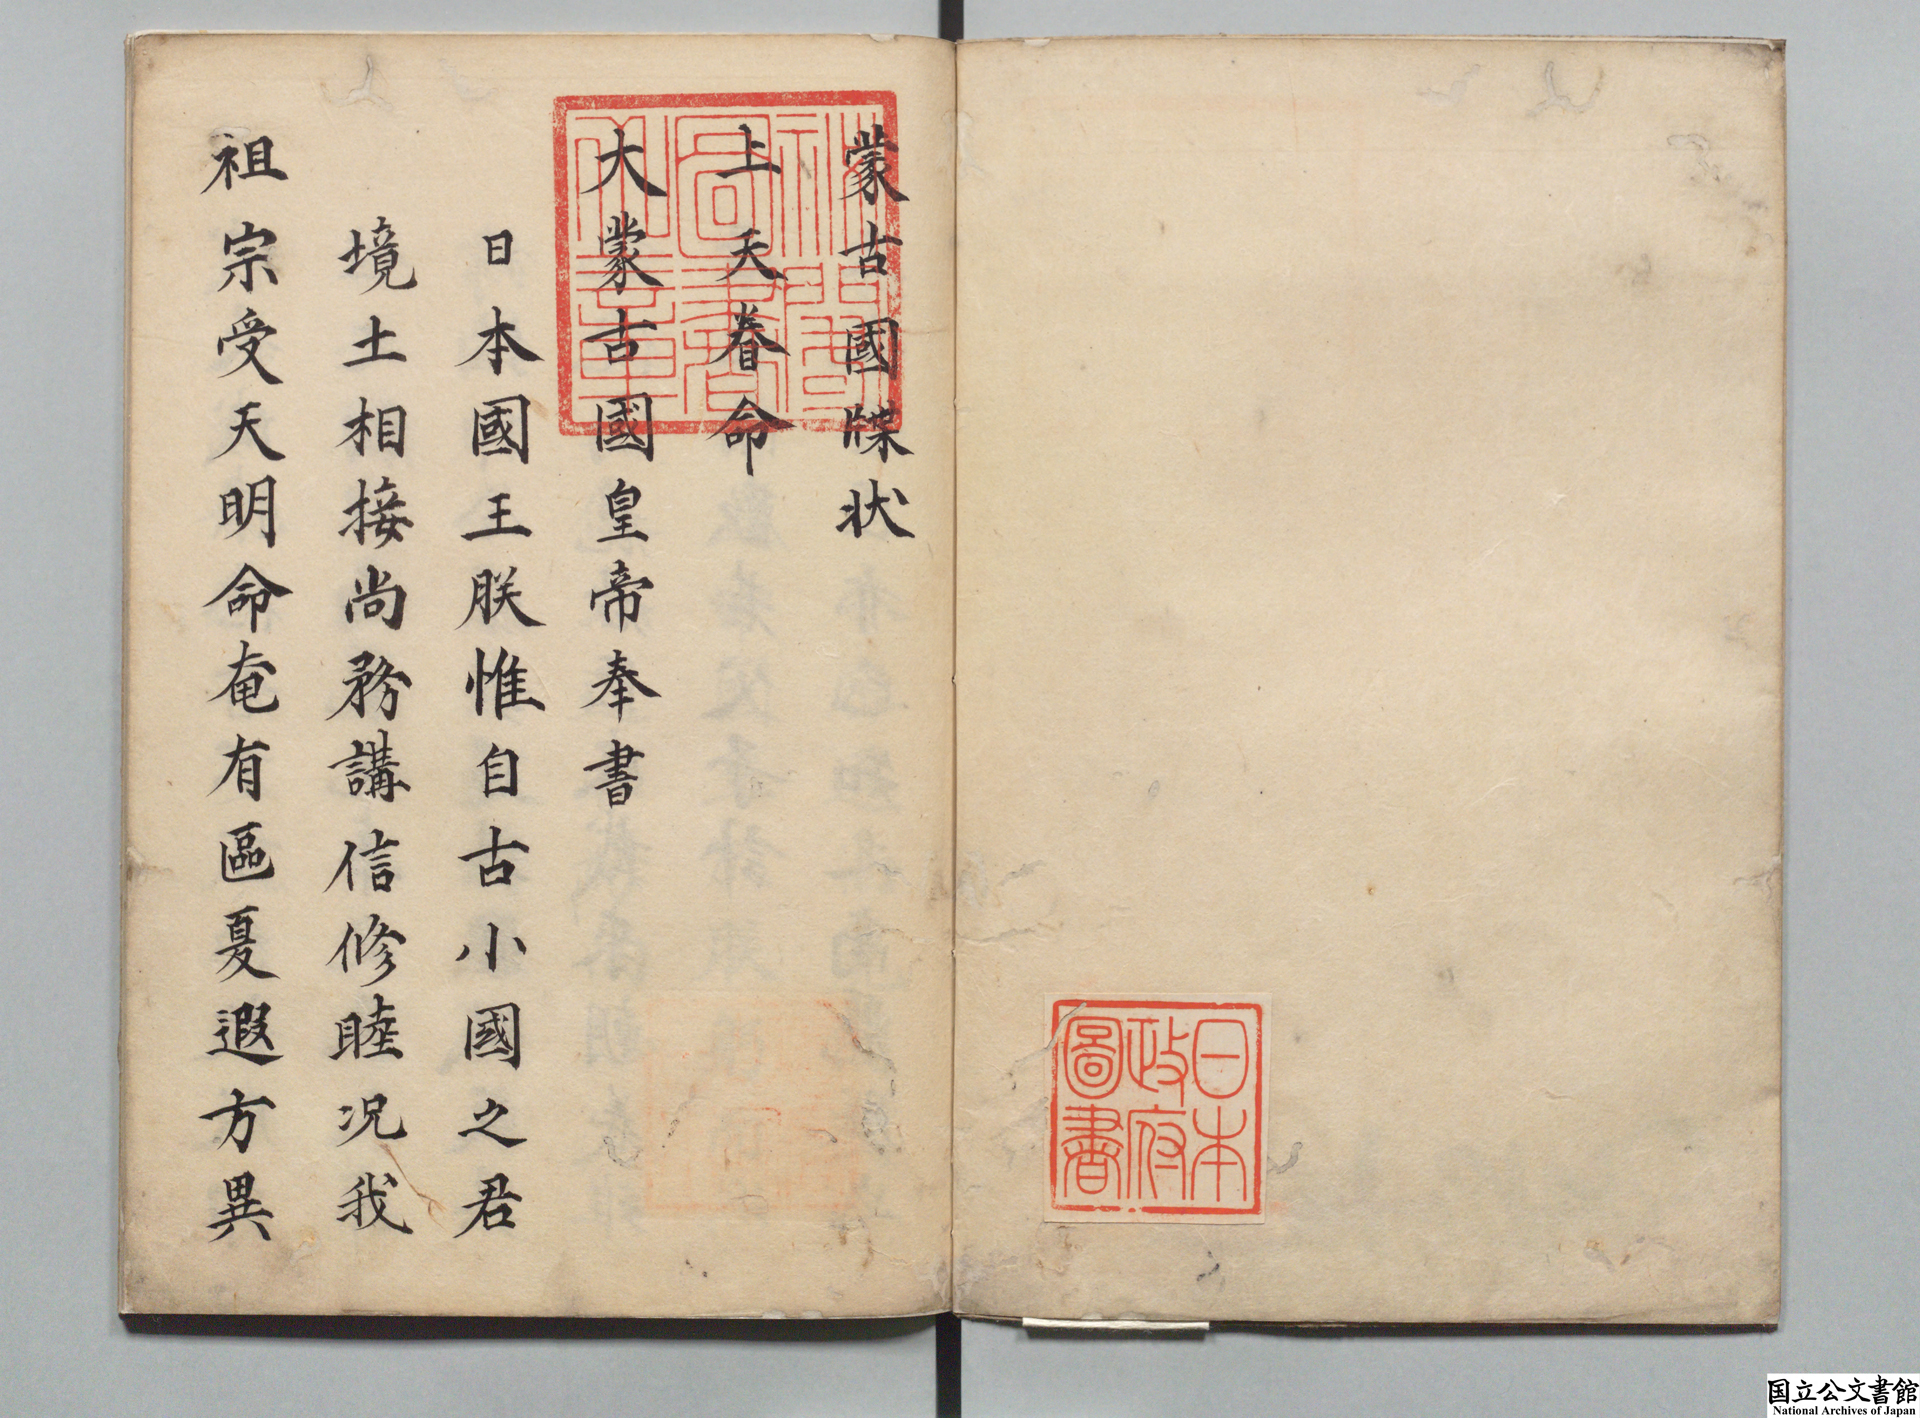 日本
政府
圖書
蒙古國牒状
上天眷命
大蒙古國皇帝奉書
日本國王朕惟自古小國之君
境土相接尚務講信修睦况我
祖宗受天明命奄有區夏遐方異
国立公文書館
National Archives of Japan